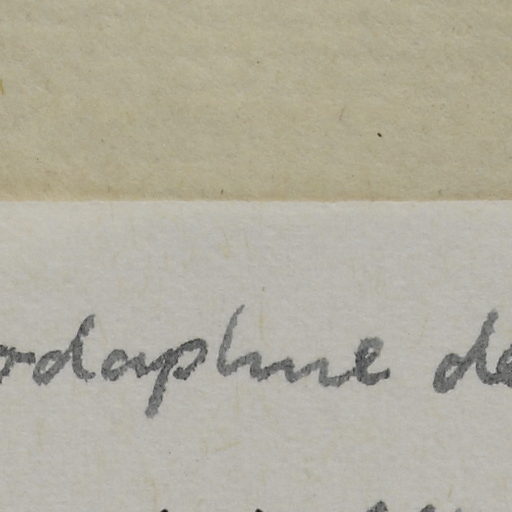 odaphne de